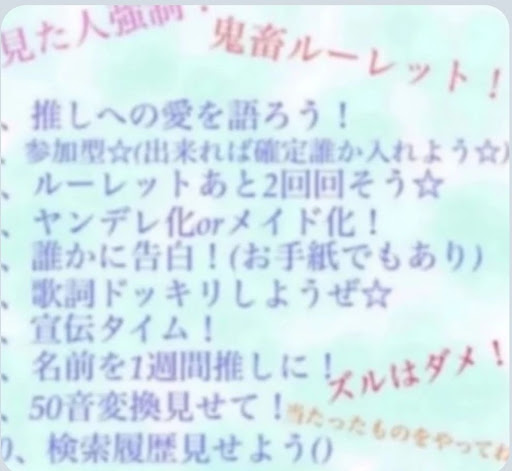 見た人強制！
鬼畜ルーレット！
、推しへの愛を語ろう！
、参加型☆(出来れば確定誰か入れよう☆)
、ルーレットあと2回回そう☆
、ヤンデレ化orメイド化！
、誰かに告白！(お手紙でもあり)
、歌詞ドッキリしようぜ☆
、宣伝タイム！
、名前を1週間推しに！
ズルはダメ！
、50音変換見せて！
当たったものをやってね
0、検索履歴見せよう()